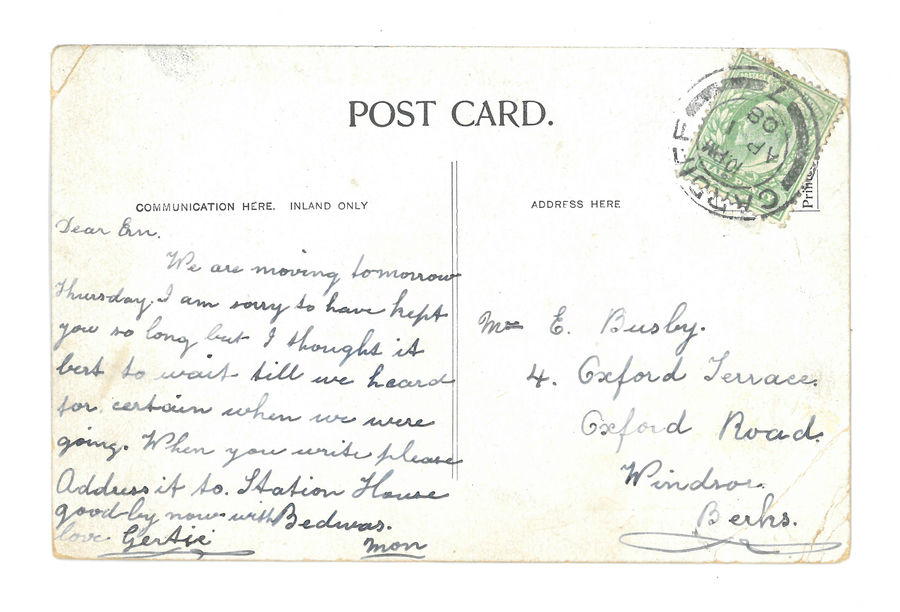 POST CARD.
COMMUNICATION HERE. INLAND ONLY
ADDRESS HERE
Dear Ern.
We are moving tomorrow
Thursday. I am sorry to have kept
you so long but I thought it
best to wait till we heard
for certain when we were
going. When you write please
Address it to. Station House
good-by now with Bedwas.
love Gertie Mon
E. Busby.
4. Oxford Terrace.
Oxford Road.
Windsor.
Berks.
10 PM
AP 1
08